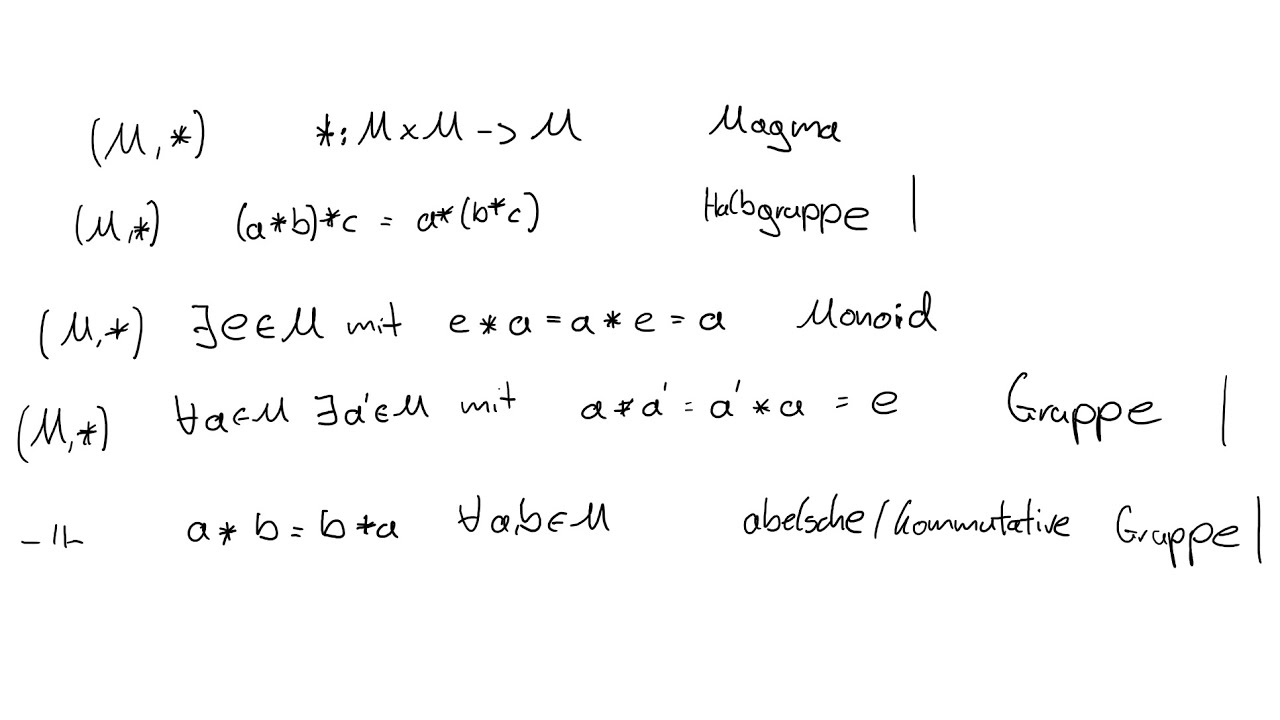 (M,*) *: M×M -> M Magma
(M,*) (a*b)*c = a*(b*c) Halbgruppe |
(M,*) ∃e∈M mit e*a = a*e = a Monoid
(M,*) ∀a∈M ∃a'∈M mit a*a' = a'*a = e Gruppe |
-"- a*b = b*a ∀a,b∈M abelsche/kommutative Gruppe |